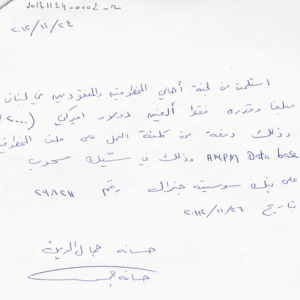 20121124-0002-2
٢٠١٢/١١/٢٤
استلمت من لجنة أهالي المخطوفين والمفقودين في لبنان
مبلغا وقدره فقط ألفين دولار اميركي (٢٠٠٠
وذلك دفعة من كلفة العمل على ملف المخطوفين
AMPM Data base وذلك في شيك مسحوب
على بنك سوسيته جنرال رقم ٢٩٨٢٧١
بتاريخ ٢٠١٢/١١/٢٦
حسانه جمال الدين